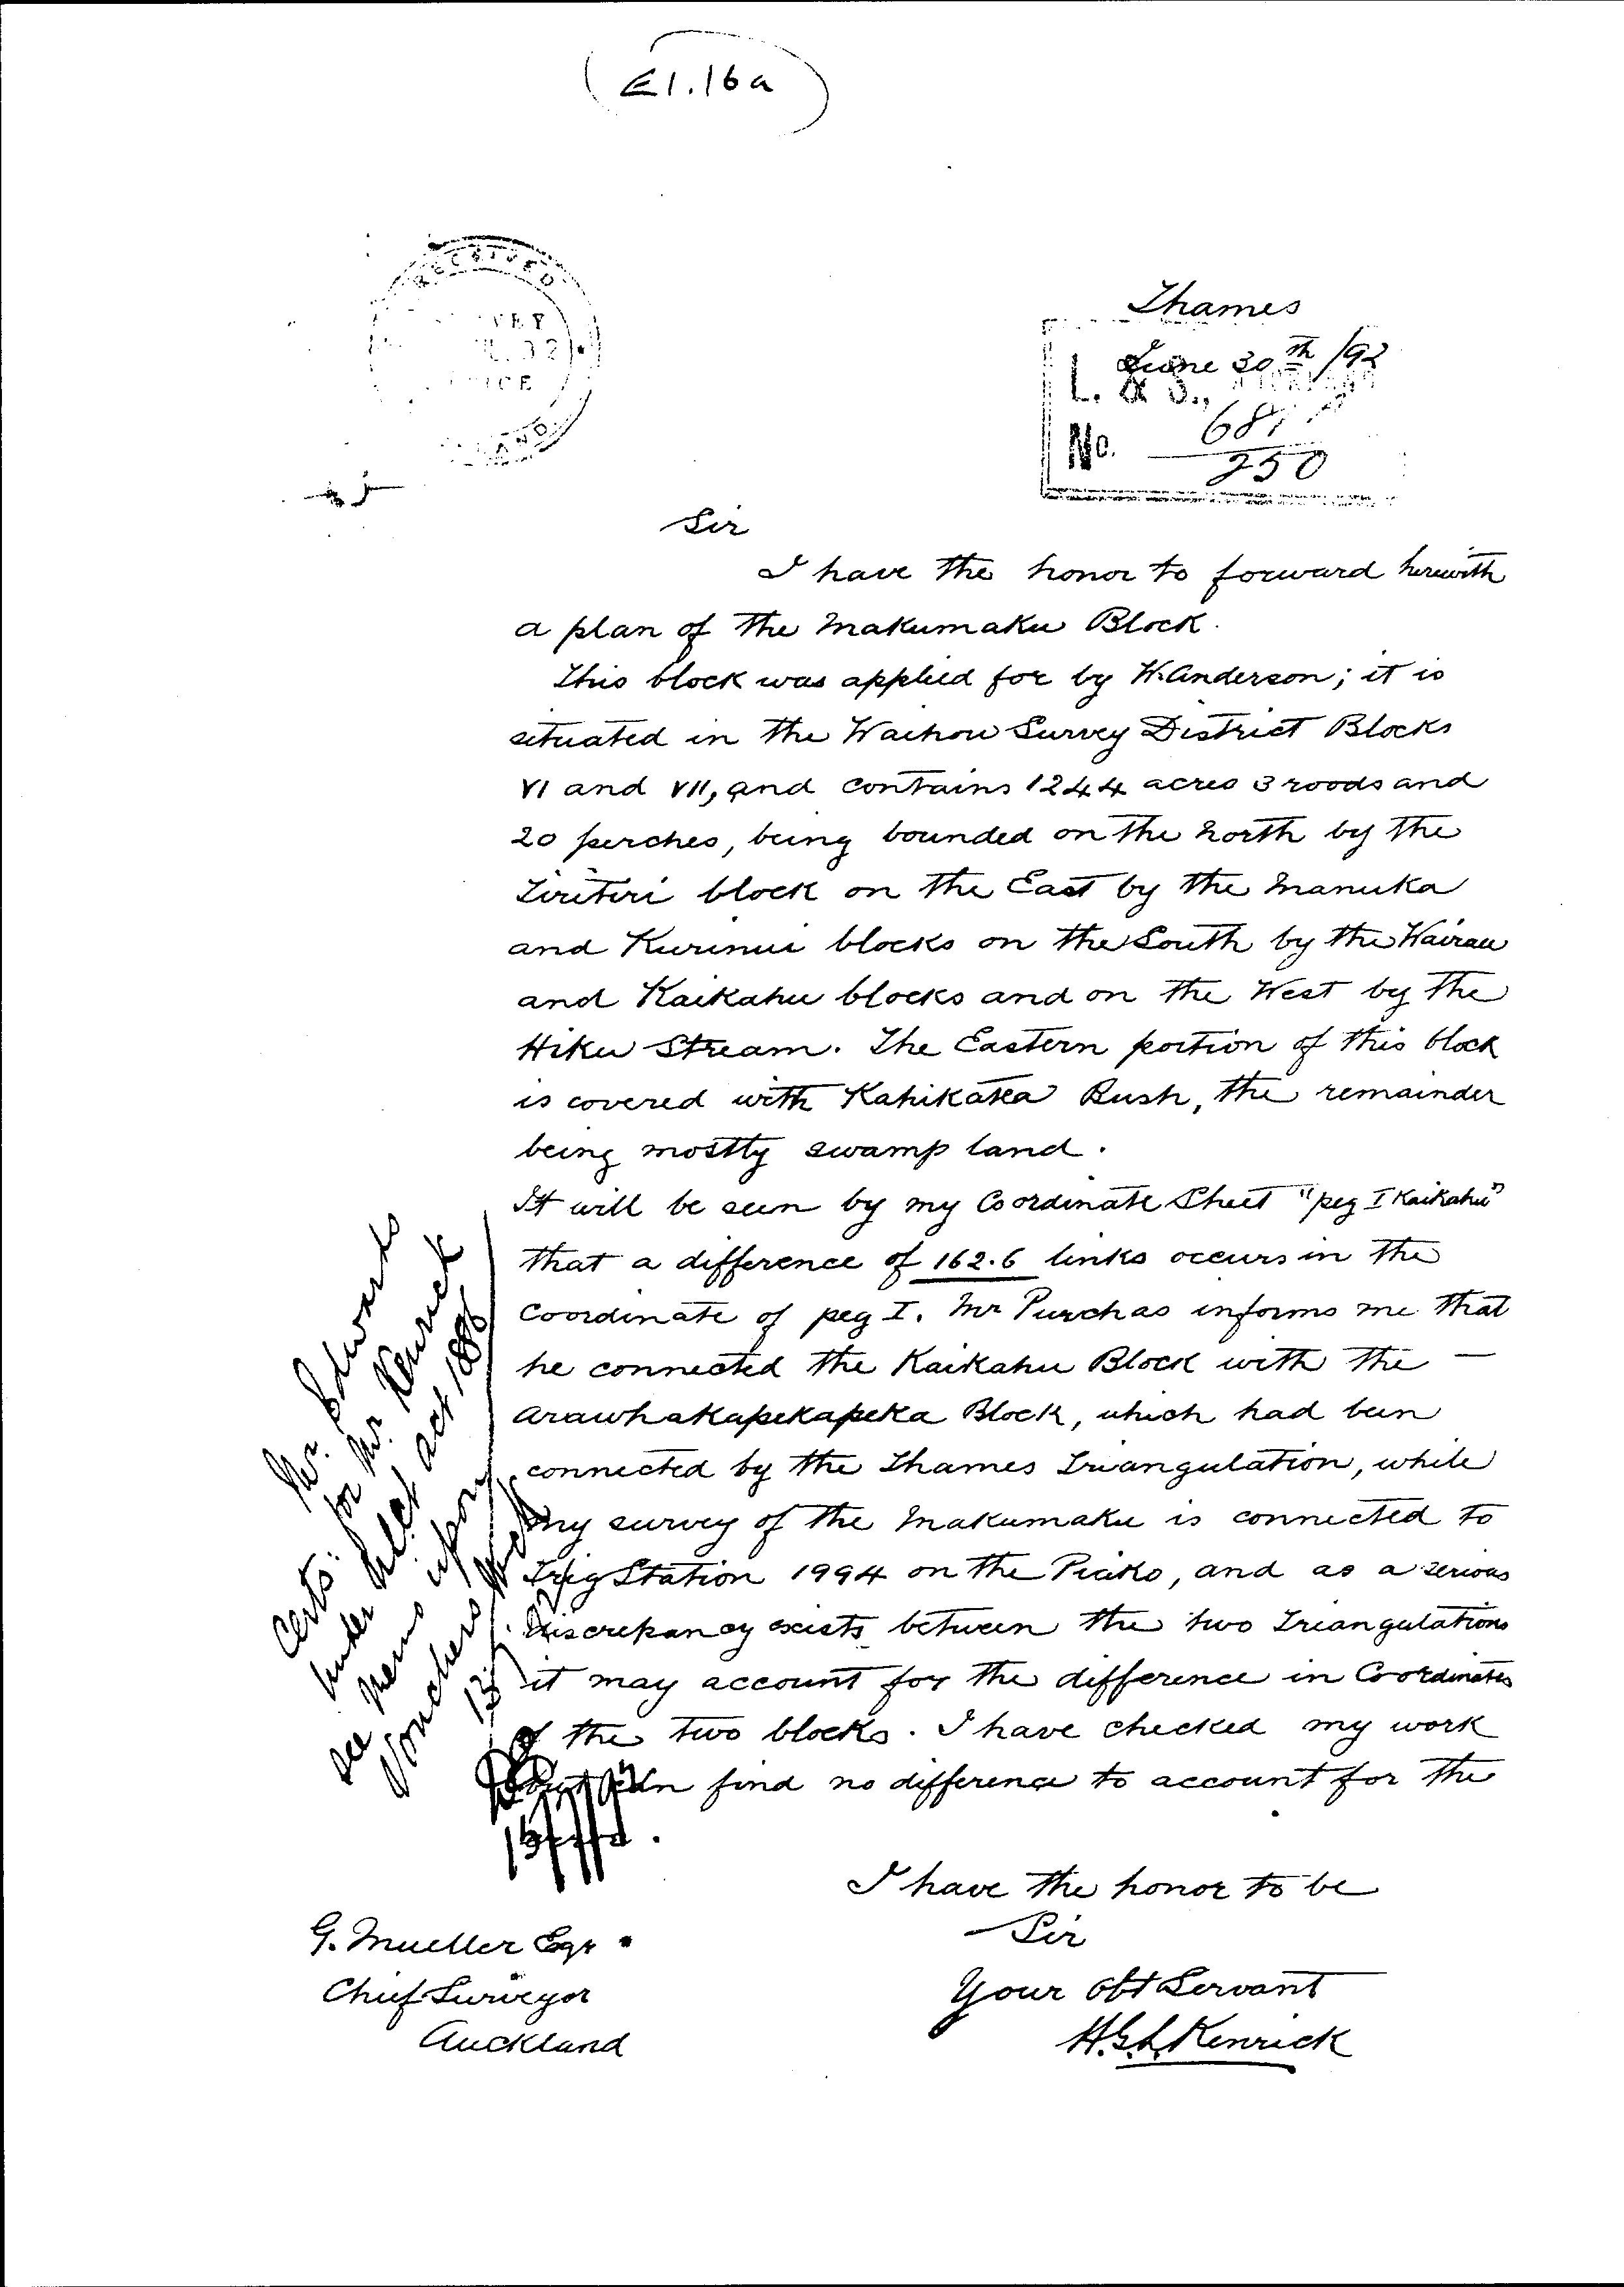 E1.16a
RECEIVED
Thames
June 30th /92
L. & S.,
No.
250
Sir
I have the honor to forward herewith
a plan of the Makumaku Block.
This block was applied for by W. Anderson; it is
situated in the Waihou Survey District Blocks
VI and VII, and contains 1244 acres 3 roods and
20 perches, being bounded on the North by the
Tiritiri block on the East by the Manuka
and Kurinui blocks on the South by the Wairau
and Kaikahu blocks and on the West by the
Hiku Stream. The Eastern portion of this block
is covered with Kahikatea Bush, the remainder
being mostly swamp land.
It will be seen by my Coordinate Sheet "peg I Kaikahu"
that a difference of 162.6 links occurs in the
Coordinate of peg I. Mr Purchas informs me that
he connected the Kaikahu Block with the —
Arawhakapekapeka Block, which had been
connected by the Thames Triangulation, while
my survey of the Makumaku is connected to
Trig Station 1994 on the Piako, and as a serious
discrepancy exists between the two Triangulations
it may account for the difference in Coordinates
of the two blocks. I have checked my work
but can find no difference to account for the
Mr. Edwards
Certs: for Mr. Kenrick
under N.L.Ct act 1886
see memo upon
Vouchers
I have the honor to be
Sir
Your Obt Servant
H.G.L. Kenrick
G. Mueller Esqr
Chief Surveyor
Auckland